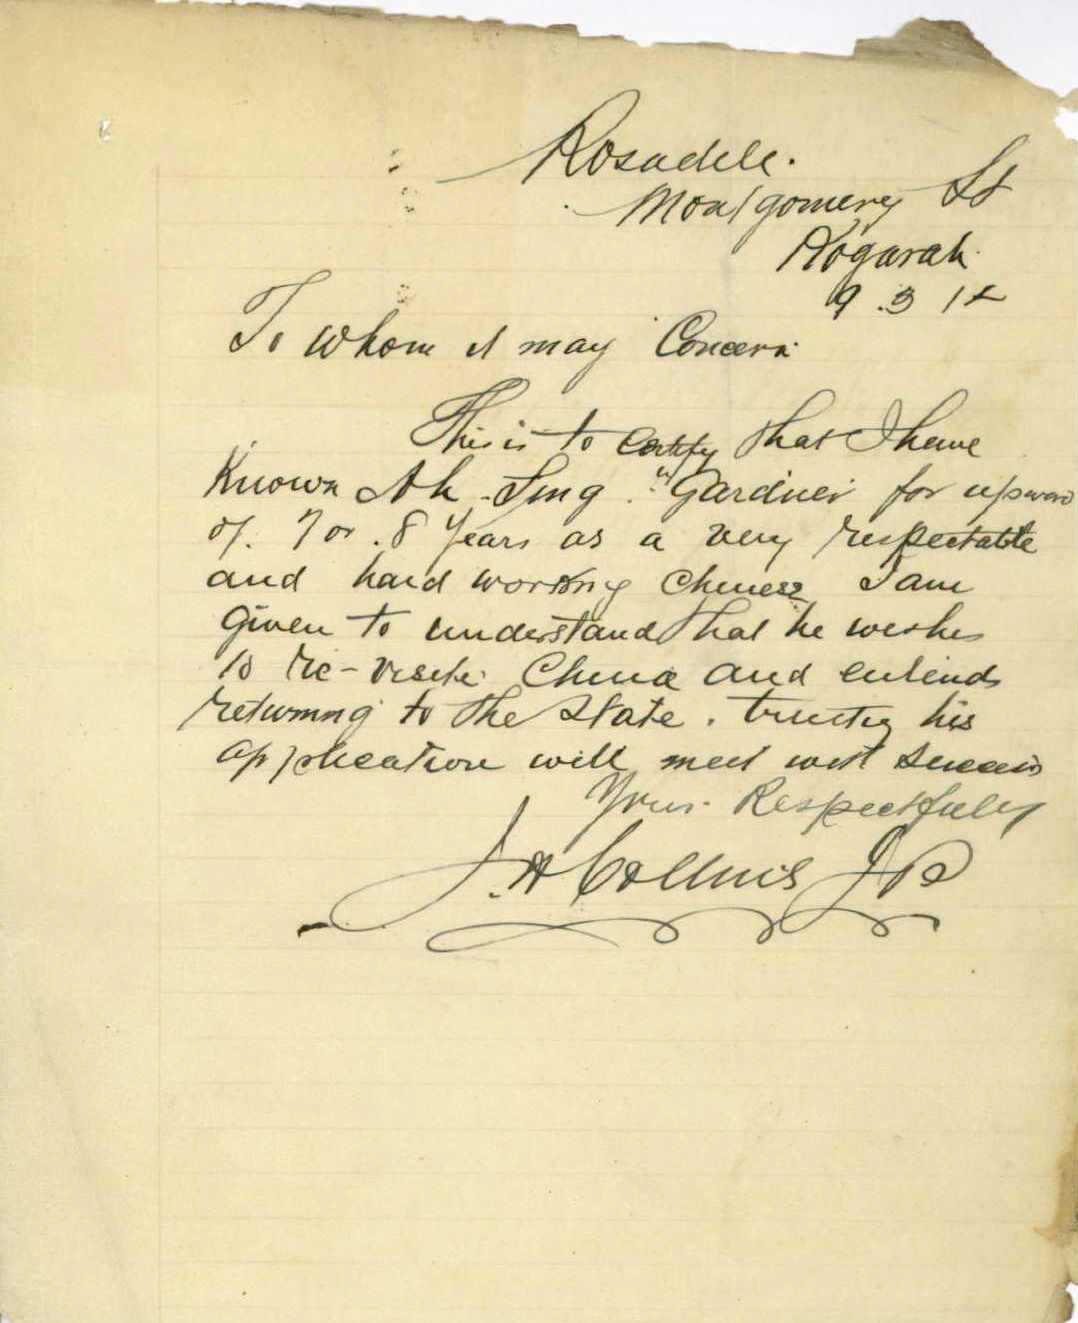 Rosadele.
Montgomery St
Kogarah.
9.3 14
To whom it may Concern.
This is to Certify that I have
Known Ah Sing "Gardner for upward
of. 7 or. 8 Years as a very respectable
and hard working Chinese I am
given to understand that he wishes
to re-visite China and entends
returning to the State. trusting his
application will meet with success
Yours Respectfully
J. H Collins JP